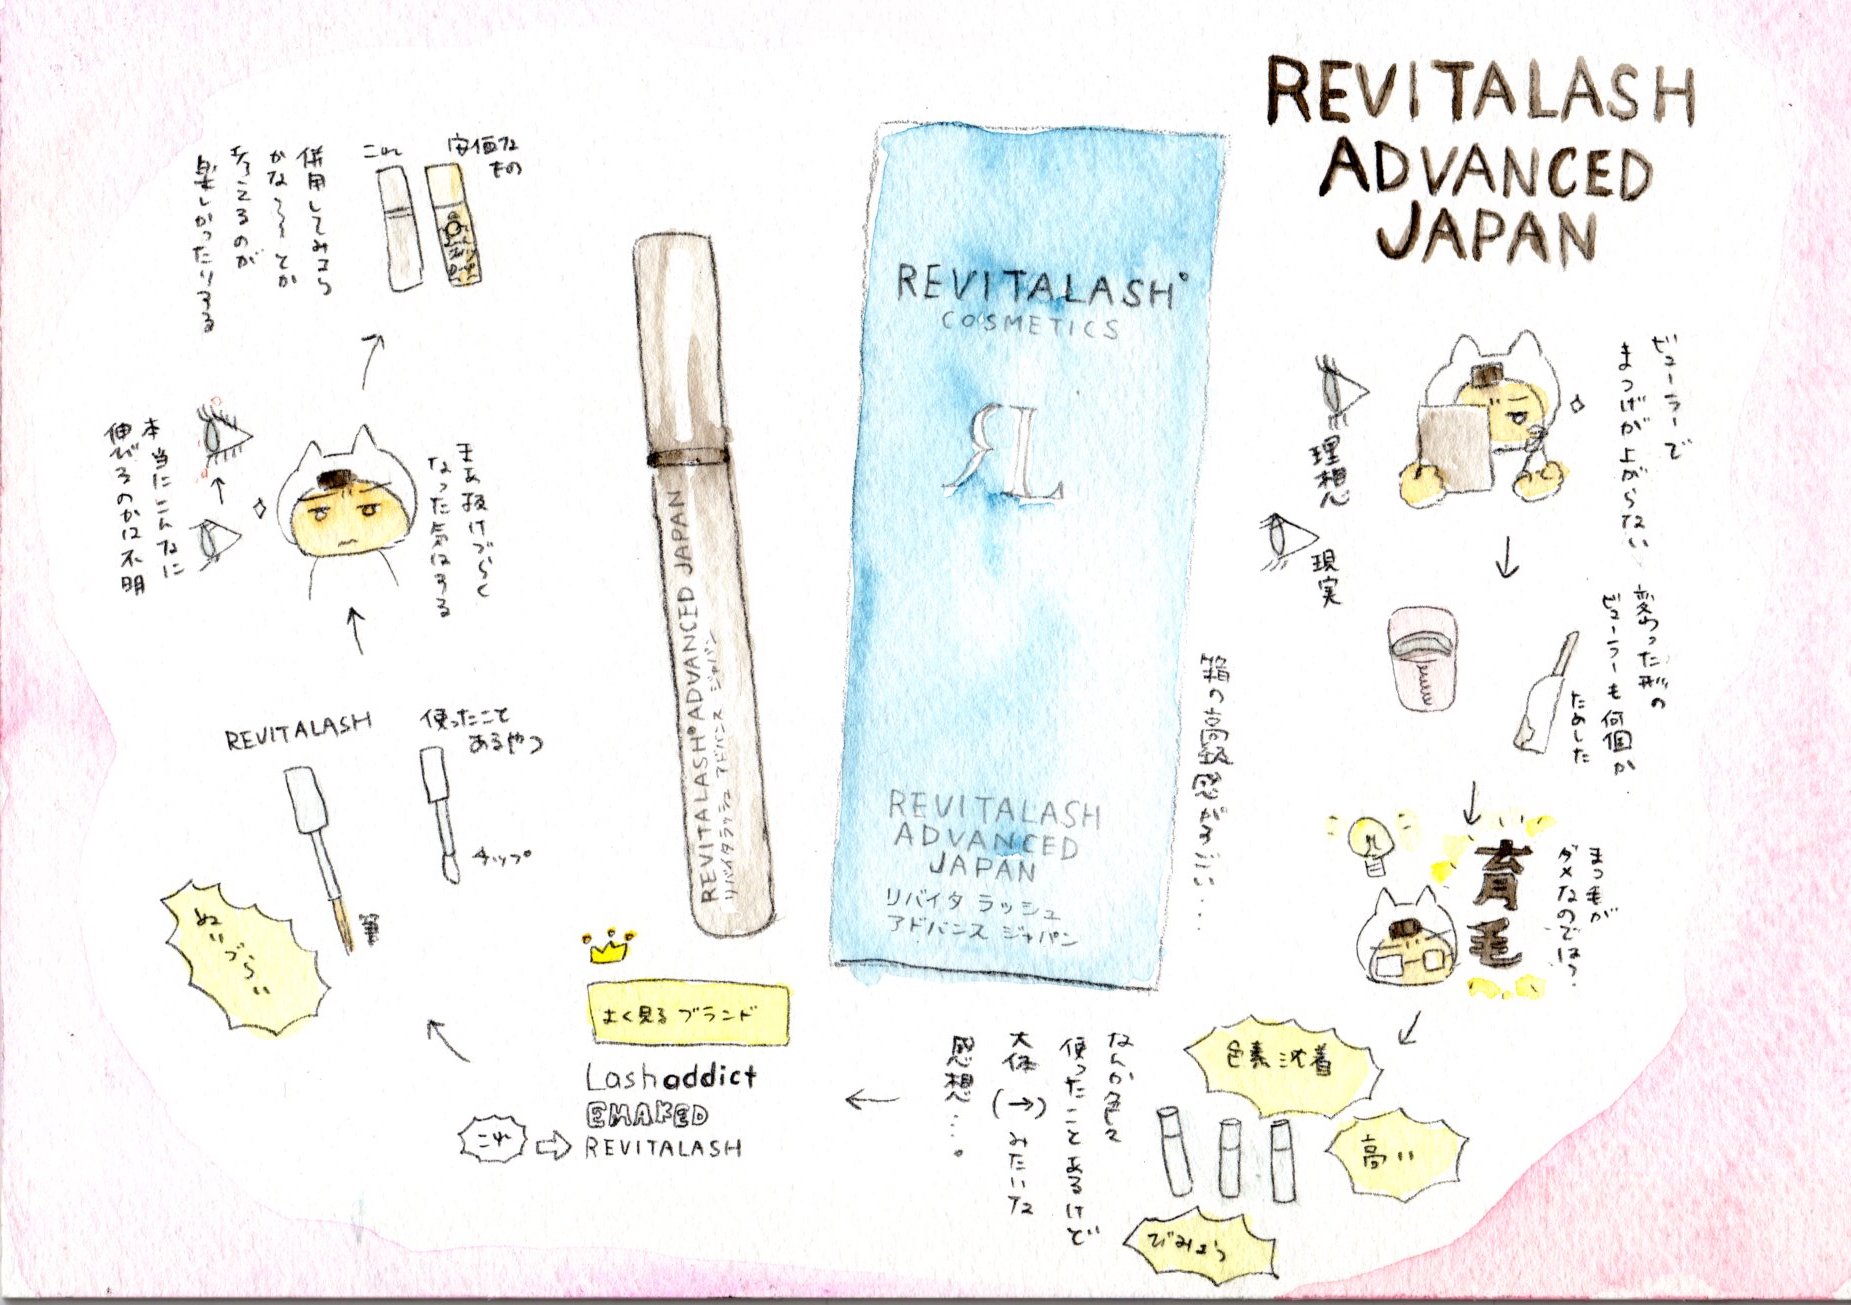 REVITALASH
ADVANCED
JAPAN
ビューラーで
まつげが上がらない
理想
現実
変わった形の
ビューラーも何個か
ためした
まつ毛が
ダメなのでは?
育毛
色素沈着
高い
びみょう
なんか色々
使ったことあるけど
大体(→)みたいな
感想…。
REVITALASH
COSMETICS
RL
REVITALASH
ADVANCED
JAPAN
リバイタラッシュ
アドバンス ジャパン
箱の高級感がすごい…
REVITALASH ADVANCED JAPAN
リバイタラッシュ アドバンス ジャパン
よく見るブランド
Lashaddict
EMAKED
REVITALASH
これ
REVITALASH
筆
ぬりづらい
使ったこと
あるやつ
チップ
まあ抜けづらく
なった気はする
本当にこんなに
伸びるのかは不明
これ
安価な
もの
併用してみたら
かな〜とか
考えるのが
楽しかったりする